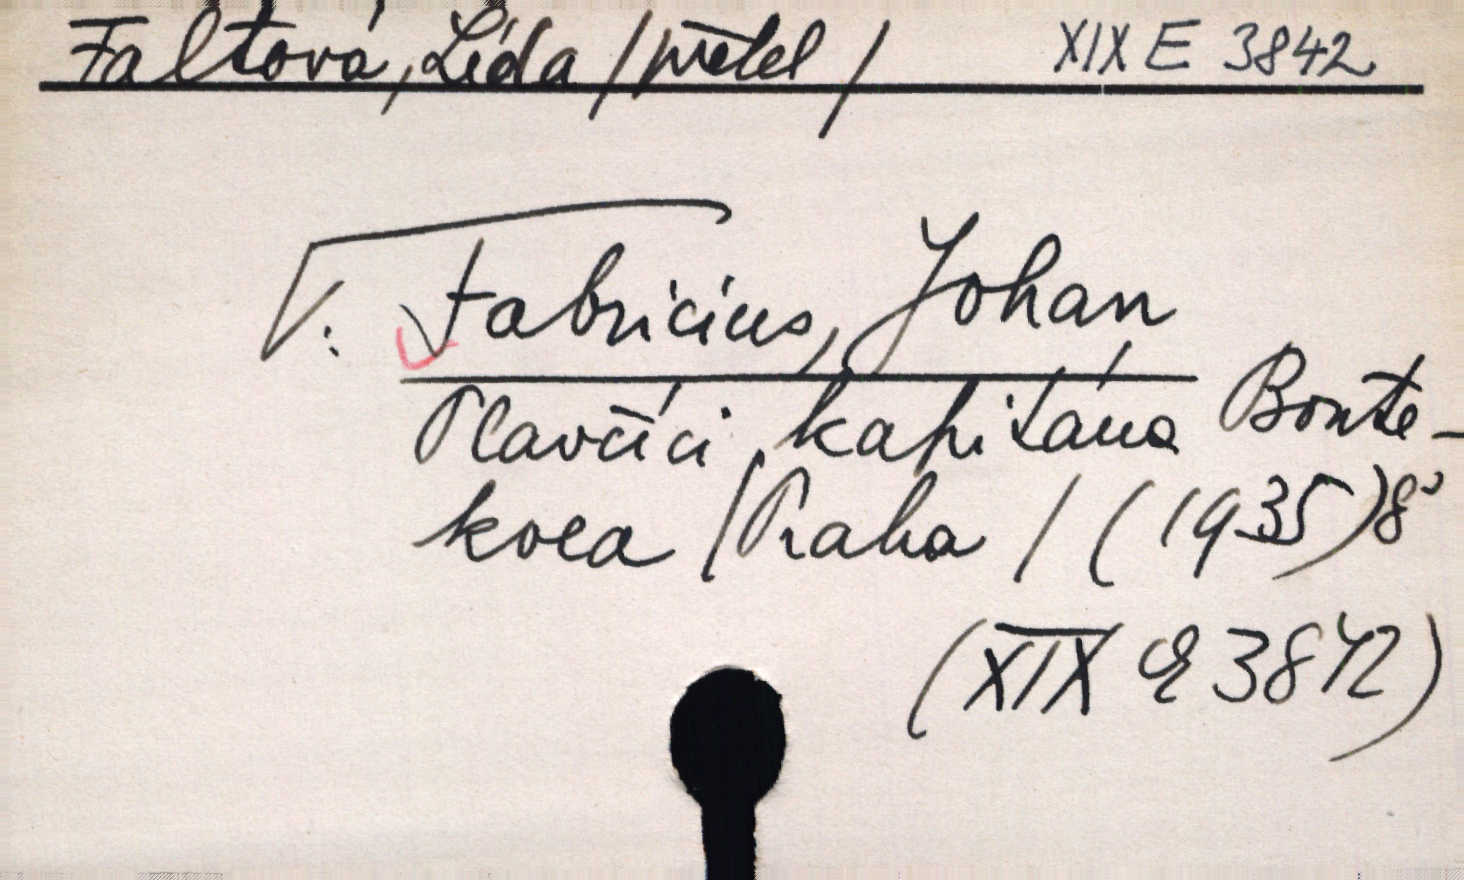 Faltová, Lída /překl/ XIX E 3842
V. Fabricius, Johan
Plavčíci kapitána Bonte-
koea /Praha / (1935) 8°
(XIX E 3842)